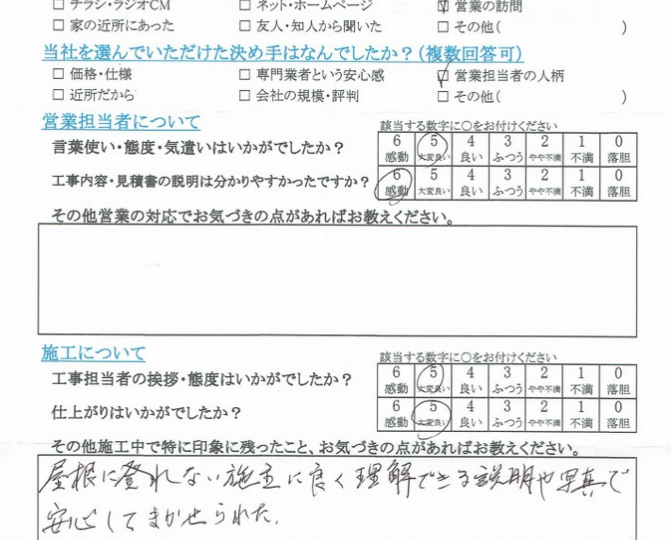 □ チラシ・ラジオCM □ ネット・ホームページ ☑ 営業の訪問
□ 家の近所にあった □ 友人・知人から聞いた □ その他( )
当社を選んでいただけた決め手はなんでしたか？(複数回答可)
□ 価格・仕様 □ 専門業者という安心感 ☑ 営業担当者の人柄
□ 近所だから □ 会社の規模・評判 □ その他( )
営業担当者について 該当する数字に○をお付けください
言葉使い・態度・気遣いはいかがでしたか？ 6 5 4 3 2 1 0
感動 大変良い 良い ふつう やや不満 不満 落胆
工事内容・見積書の説明は分かりやすかったですか？ 6 5 4 3 2 1 0
感動 大変良い 良い ふつう やや不満 不満 落胆
その他営業の対応でお気づきの点があればお教えください。
施工について 該当する数字に○をお付けください
工事担当者の挨拶・態度はいかがでしたか？ 6 5 4 3 2 1 0
感動 大変良い 良い ふつう やや不満 不満 落胆
仕上がりはいかがでしたか？ 6 5 4 3 2 1 0
感動 大変良い 良い ふつう やや不満 不満 落胆
その他施工中で特に印象に残ったこと、お気づきの点があればお教えください。
屋根に登れない施主に良く理解できる説明や写真で
安心してまかせられた.